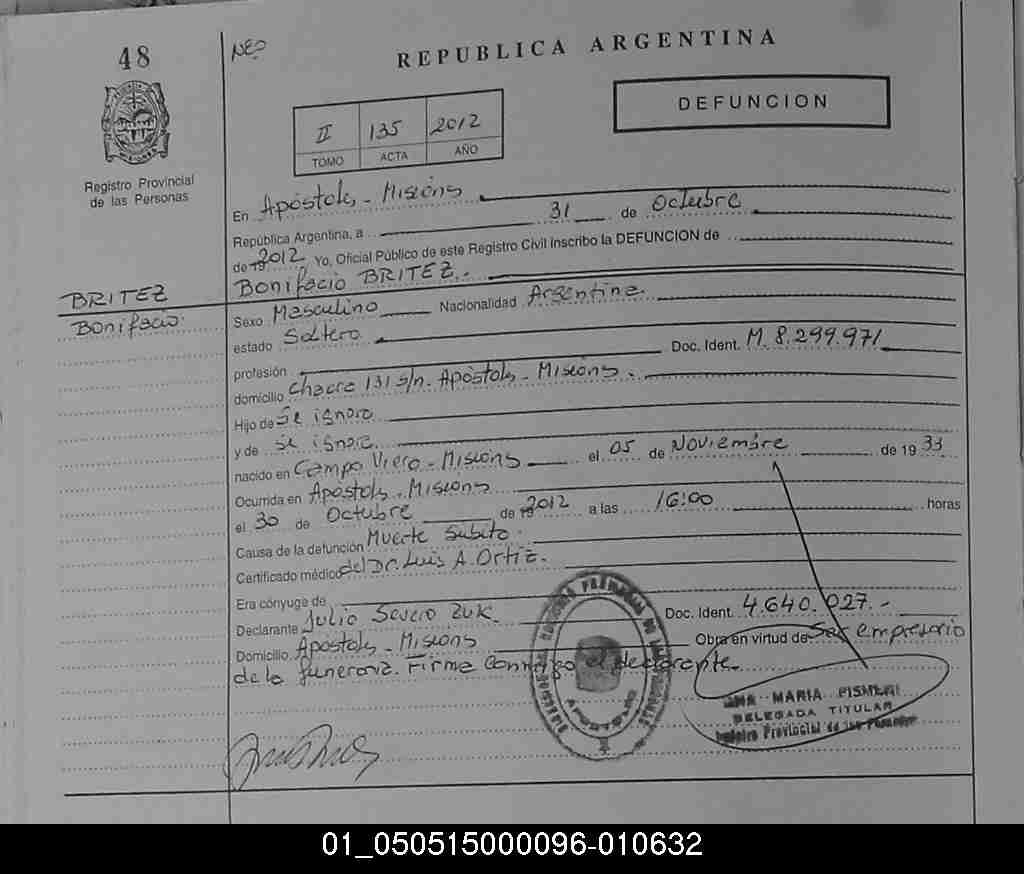 48
NEO
REPUBLICA ARGENTINA
DEFUNCION
II 135 2012
TOMO ACTA AÑO
Registro Provincial
de las Personas
En Apóstoles - Misiones
República Argentina, a 31 de Octubre
de 19 2012 Yo, Oficial Público de este Registro Civil inscribo la DEFUNCION de
Bonifacio BRITEZ.-
BRITEZ
Bonifacio
Sexo Masculino Nacionalidad Argentina.
estado Soltero
profesión Doc. Ident. M. 8.299.971
domicilio Chacra 131 s/n. Apóstoles - Misiones.
Hijo de Se ignora
y de se ignora
nacido en Campo Viera - Misiones el 05 de Noviembre de 19 33
Ocurrida en Apóstoles - Misiones
el 30 de Octubre de 19 2012 a las 16:00 horas
Causa de la defunción Muerte Subita.
Certificado médico del Dr. Luis A. Ortiz.
Era cónyuge de
Declarante Julio Severo Zuk. Doc. Ident. 4.640.027.-
Domicilio Apóstoles - Misiones Obra en virtud de Ser empresario
de la funeraria. Firma conmigo el declarante.
MARIA
DELEGADA TITULAR
Registro Provincial de las Personas
01_050515000096-010632